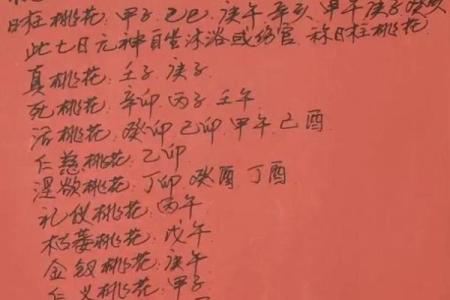 日柱桃花:甲子 乙巳 庚午 辛亥 甲午 庚子 癸
此七日元神自坐沐浴或伤官,称日柱桃花
真桃花:壬子 庚子
死桃花:辛卯 丙子 壬午
活桃花:癸卯 己卯 甲午 己酉
仁慈桃花:乙卯
淫欲桃花:丁卯 癸酉 丁酉
礼仪桃花:丙午
枯萎桃花:戊午
金钗桃花:庚午
仁义桃花:甲子